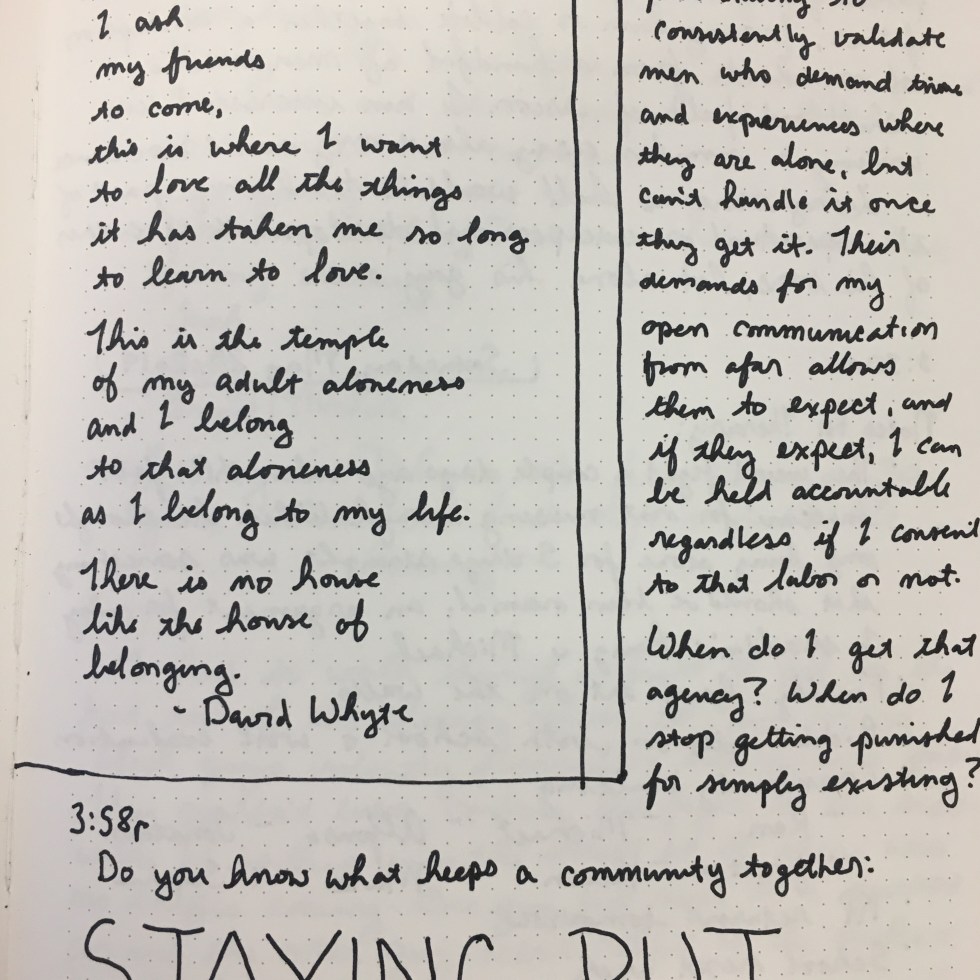 I ask
my friends
to come,
this is where I want
to love all the things
it has taken me so long
to learn to love.
This is the temple
of my adult aloneness
and I belong
to that aloneness
as I belong to my life.
There is no house
like the house of
belonging.
- David Whyte
consistently validate
men who demand time
and experiences where
they are alone, but
can't handle it once
they get it. Their
demands for my
open communication
from afar allows
them to expect, and
if they expect, I can
be held accountable
regardless if I consent
to that labor or not.
When do I get that
agency? When do I
stop getting punished
for simply existing?
3:58p
Do you know what keeps a community together:
STAYING PUT